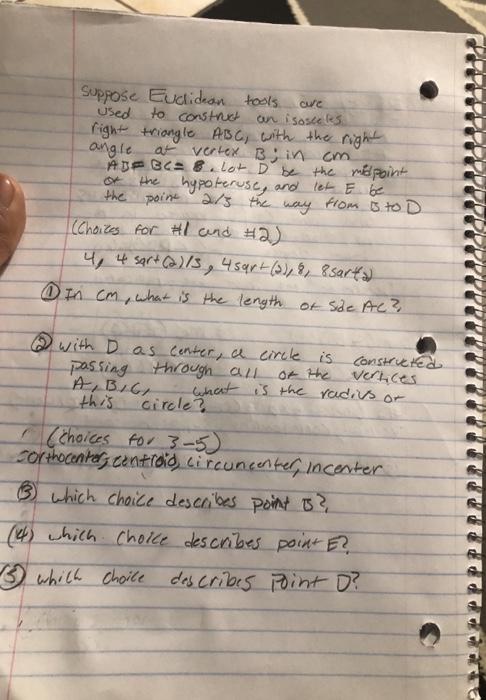 Suppose Euclidean tools are
used to construct an isosceles
right triangle ABC, with the right
angle at vertex B; in cm
AB = BC = 8. Let D be the midpoint
of the hypotenuse, and let E be
the point 2/3 the way from B to D
(Choices for #1 and #2)
4, 4 sqrt(2)/3, 4 sqrt(2), 8, 8 sqrt(2)
① In cm, what is the length of Side AC?
② with D as center, a circle is constructed
passing through all of the vertices
A, B, C, what is the radius of
this circle?
(choices for 3-5)
orthocenter, centroid, circumcenter, incenter
③ which choice describes point B?
(4) which choice describes point E?
⑤ which choice describes Point D?